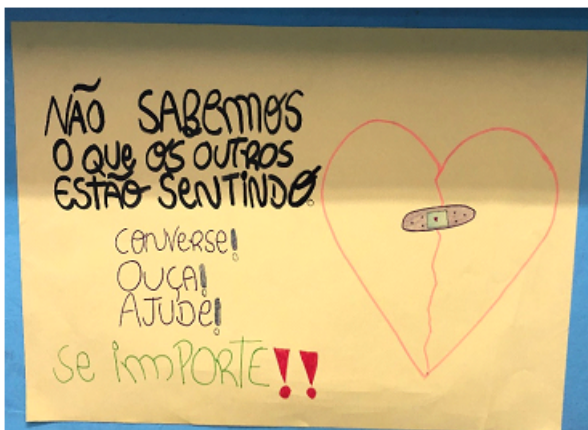 NÃO SABEMOS
O QUE OS OUTROS
ESTÃO SENTINDO.
CONVERSE!
OUÇA!
AJUDE!
SE IMPORTE!!